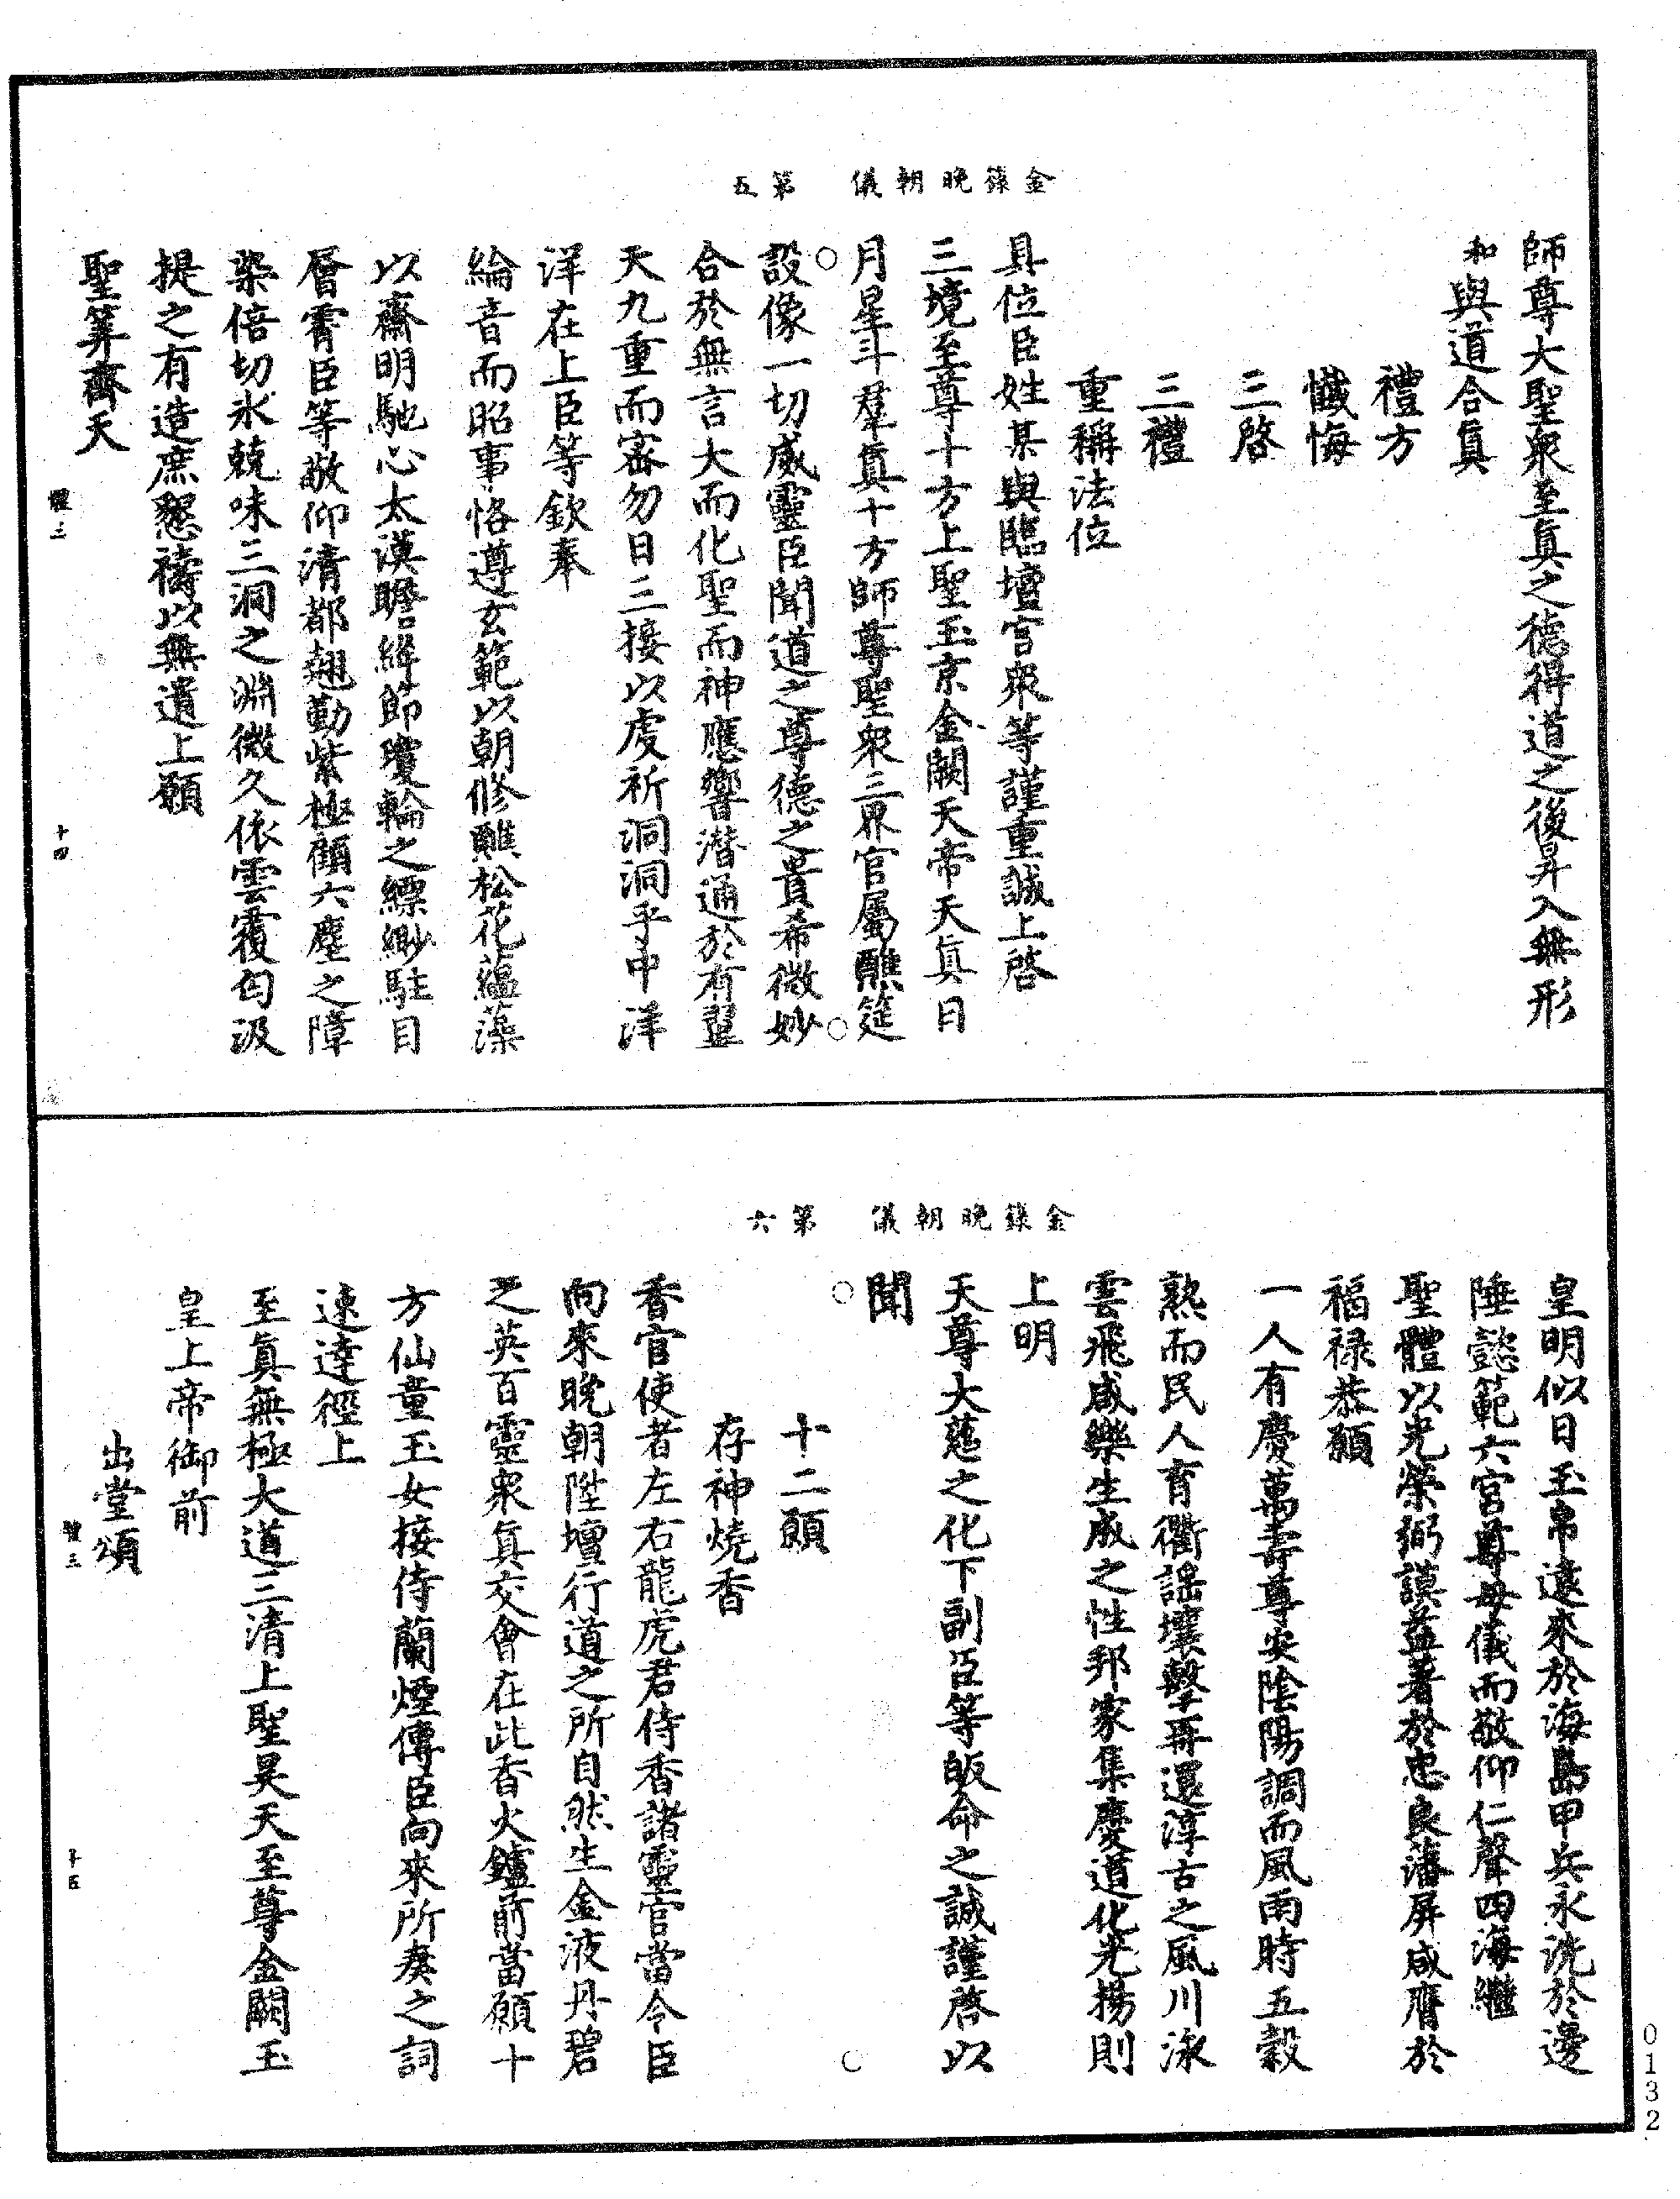 金籙晚朝儀　第五
師尊大聖衆至真之德得道之後昇入無形
和與道合真
禮方
懺悔
三啓
三禮
重稱法位
具位臣姓某與臨壇官衆等謹重誠上啓
三境至尊十方上聖玉京金闕天帝天真日
月星斗羣真十方師尊聖衆三界官屬醮筵
設像一切威靈臣聞道之尊德之貴希微妙
合於無言大而化聖而神應響潛通於有翼
天九重而審勿日三接以虔祈洞洞乎中洋
洋在上臣等欽奉
綸音而昭事恪遵玄範以朝修醮松花蘊藻
以齋明馳心太漠瞻絳節瓊輪之縹緲駐目
層霄臣等敬仰清都翹勤紫極顧六塵之障
染倍切氷兢味三洞之淵微久依雲覆匄汲
提之有造庶懇禱以無遺上願
聖筭齊天
體三
十四
金籙晚朝儀　第六
皇明似日玉帛遠來於海島甲兵永洗於邊
陲懿範六宮尊母儀而敬仰仁聲四海繼
聖體以光榮弼謨益著於忠良藩屏咸膺於
福祿恭願
一人有慶萬壽尊安陰陽調而風雨時五穀
熟而民人育衢謠壤擊再還淳古之風川泳
雲飛咸樂生成之性邦家集慶道化光揚則
上明
天尊大慈之化下副臣等皈命之誠謹啓以
聞
十二願
存神燒香
香官使者左右龍虎君侍香諸靈官當令臣
向來晚朝陞壇行道之所自然生金液丹碧
芝英百靈衆真交會在此香火鑪前當願十
方仙童玉女接侍蘭煙傳臣向來所奏之詞
速達徑上
至真無極大道三清上聖昊天至尊金闕玉
皇上帝御前
出堂頌
體三
十五
0132